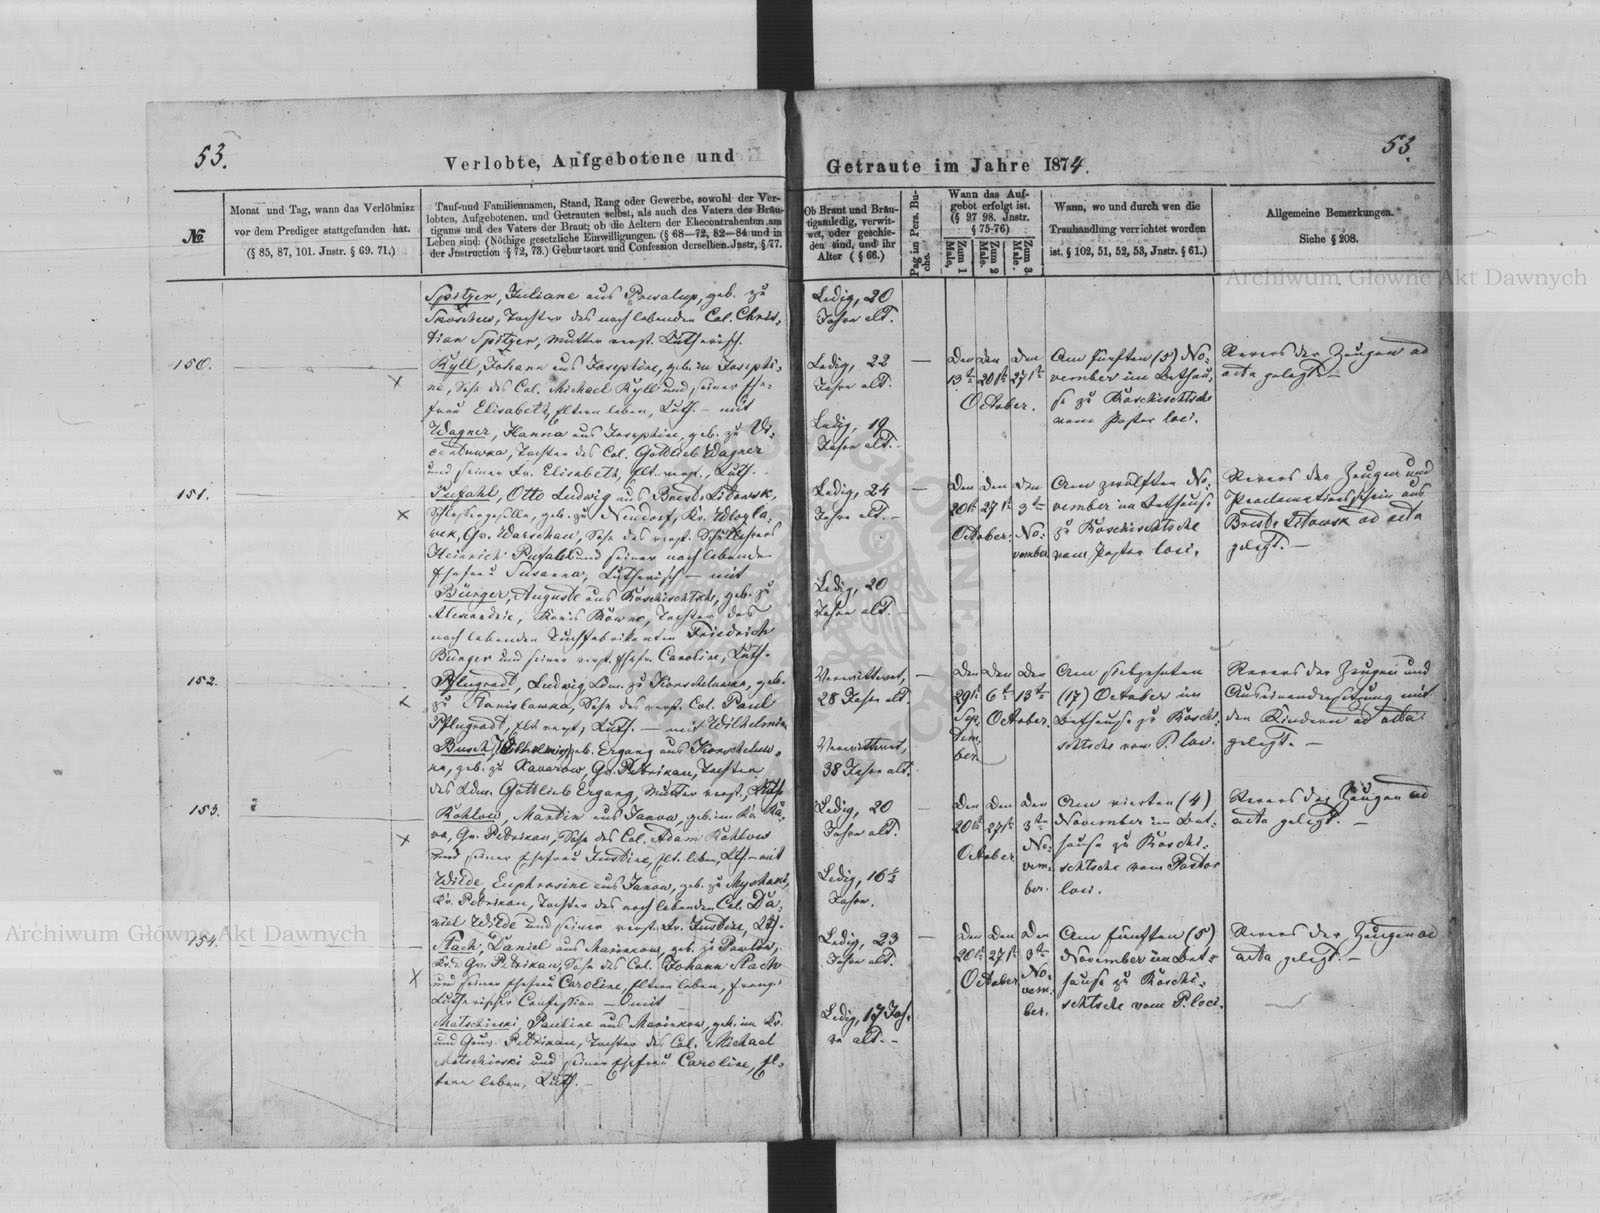 53.
Verlobte, Aufgebotene und
Getraute im Jahre 1874.
53.
№
Monat und Tag, wann das Verlöbnisz
vor dem Prediger stattgefunden hat.
(§ 85, 87, 101. Jnstr. § 69. 71.)
Tauf-und Familiennamen, Stand, Rang oder Gewerbe, sowohl der Ver-
lobten, Aufgebotenen, und Getrauten selbst, als auch des Vaters des Bräu-
tigams und des Vaters der Braut; ob die Aeltern der Ehecontrahenten am
Leben sind: (Nöthige gesetzliche Einwilligungen. (§ 68—72, 82—84 und in
der Jnstruction § 72, 73.) Geburtsort und Confession derselben. Jnstr, § 77.
Ob Braut und Bräu-
tigam ledig, verwit-
wet, oder geschie-
den sind, und ihr
Alter (§ 66.)
Pag. im Pers. Bu-
che.
Wann das Auf-
gebot erfolgt ist.
(§ 97 98. Jnstr.
§ 75-76)
Zum 1 Male,
Zum 2 Male.
Zum 3 Male.
Wann, wo und durch wen die
Trauhandlung verrichtet worden
ist. § 102, 51, 52, 53, Jnstr. § 61.)
Allgemeine Bemerkungen.
Siehe § 208.
Spitzer, Juliane aus geb. zu
Tochter des noch lebenden Col. Chris-
tian Spitzer, Mutter verst. Lutherisch.
Ledig, 20
Jahre alt.
150.
Kyll, Johann aus Josephine, geb. in Josephi-
ne, Sohn des Col. Michael Kyll und seiner Ehe-
frau Elisabeth, Eltern leben, Luth. — mit
Wagner, Hanna aus Josephine, geb. zu
Tochter des Col. Gottlieb Wagner
und seiner Fr. Elisabeth, Elt. verst., Luth.
Ledig, 22
Jahre alt.
Ledig, 19
Jahre alt.
Den Den Den
13t 20t 27t
October.
Am fünften (5) No-
vember im Bethau-
se zu Roschischtsche
vom Pastor loci.
Revers der Zeugen ad
acta gelegt. —
151.
Pufahl, Otto Ludwig aus Brest-Litowsk,
Schlossergeselle, geb. zu Neudorf, Kr. Wlozla-
wek, Gv. Warschau, Sohn des verst. Schullehrers
Heinrich Pufahl und seiner noch lebenden
Ehefrau Susanna, Lutherisch — mit
Bürger, Auguste aus Roschischtsche, geb. zu
Alexandrie, Kreis Rowno, Tochter des
noch lebenden Tuchfabrikanten Friedrich
Bürger und seiner verst. Ehefr. Caroline, Luth.
Ledig, 24
Jahre alt. —
Ledig, 20
Jahre alt. —
Den Den Den
20t 27t 3t
October. No-
vember
Am zwölften No-
vember im Bethause
zu Roschischtsche
vom Pastor loci.
Revers der Zeugen und
Proclamationsschein aus
Brest-Litowsk ad acta
gelegt. —
152.
Pflugradt, Ludwig, geb.
zu Stanislawka, Sohn des verst. Col. Paul
Pflugradt, Elt. verst., Luth. — mit Wilhelmine
Busch, geb. Ergang aus
geb. zu Gv. Petrikau, Tochter
des Gottlieb Ergang, Mutter verst., Luth.
Verwittwet,
28 Jahre alt.
Verwittwet,
38 Jahre alt.
Den Den Den
29t 6t 13t
Sep- October.
tem-
ber.
Am siebzehnten
(17) October im
Bethause zu Roschi-
schtsche vom P. loci.
Revers der Zeugen und
Auseinandersetzung mit
den Kindern ad acta
gelegt. —
153.
Rohlow, Martin aus Janow, geb. im Kr. Ra-
wa, Gv. Petrikau, Sohn des Col. Adam Rohlow
und seiner Ehefrau Justine, Elt. leben, Lth — mit
Wilde, Euphrosine aus Janow, geb. zu
Kr. Petrikau, Tochter des noch lebenden Col. Da-
niel Wilde und seiner verst. Fr. Justine, Lth.
Ledig, 20
Jahre alt.
Ledig, 16½
Jahre.
Den Den Den
20t 27t 3t
October No-
vem-
ber.
Am vierten (4)
November im Bet-
hause zu Roschi-
schtsche vom Pastor
loci.
Revers der Zeugen ad
acta gelegt. —
154.
Stach, Daniel aus Marinkow, geb. zu Pawlow,
Gv. Petrikau, Sohn des Col. Johann Stach
und seiner Ehefrau Caroline, Eltern leben, Evang.
Lutherischer Confession — mit
Matschinski, Pauline aus Marinkow, geb. im Kr.
und Gouv. Petrikau, Tochter des Col. Michael
Matschinski und seiner Ehefrau Caroline, El-
tern leben, Luth. —
Ledig, 23
Jahre alt.
Ledig, 17 Jah-
re alt. —
Den Den Den
20t 27t 3t
October No-
vem-
ber.
Am fünften (5)
November im Bet-
hause zu Roschi-
schtsche vom P. loci.
Revers der Zeugen ad
acta gelegt. —
Archiwum Główne Akt Dawnych
Archiwum Główne Akt Dawnych